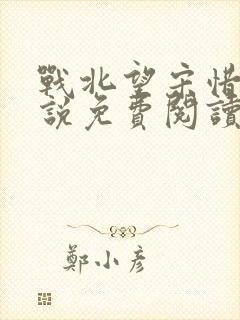 戰北望宋惜
說免費閱讀
鄭小彥